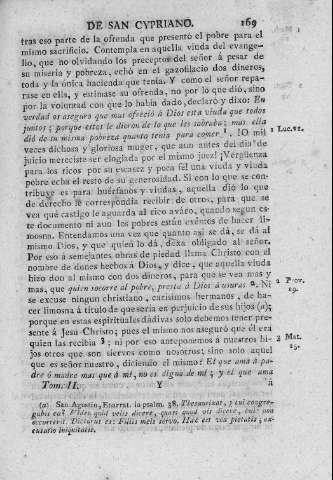 DE SAN CYPRIANO. 169
tras eso parte de la ofrenda que presentó el pobre para el
mismo sacrificio. Contempla en aquella viuda del evange-
lio, que no olvidando los preceptos del señor á pesar de
su miseria y pobreza, echó en el gazofilacio dos dineros,
toda y la única hacienda que tenia. Y como el señor repa-
rase en ella, y estimase su ofrenda, no por lo que dió, sino
por la voluntad con que lo habia dado, declaró y dixo: En
verdad os aseguro que mas ofreció á Dios esta viuda que todos
juntos; porque estos le dieron de lo que les sobraba; mas ella
dió de su misma pobreza quanto tenia para comer 1. ¡O mil
1 Luc. 21.
veces dichosa y gloriosa muger, que aun antes del dia de
juicio mereciste ser elogiada por el mismo juez! ¡Vergüenza
para los ricos por su escasez y poca fe! una viuda y pobre
pobre echa el resto de su generosidad. Si con lo que se con-
tribuye es para huérfanos y viudas, aquella dió lo que
de derecho le correspondia recibir de otros, para que se
vea qué castigo le aguarda al rico aváro, quando segun es-
te documento ni aun los pobres están exêntos de hacer li-
mosna. Entendamos una vez que quanto asi se dá, se dá al
mismo Dios, y que quien lo dá, dexa obligado al señor.
Por eso á semejantes obras de piedad llama Christo con el
nombre de dones hechos á Dios, y dice, que aquella viuda
hizo don al mismo con dos dineros, para que se vea mas y
mas, que quien socorre al pobre, presta á Dios á usuras 2. Ni
2 Prov.
19.
se excuse ningun christiano, carísimos hermanos, de ha-
cer limosna á título de que seria en perjuicio de sus hijos (a);
porque en estas espirituales dádivas solo debemos tener pre-
sente á Jesu-Christo; pues el mismo nos aseguró que él era
quien las recibia 3; ni por eso anteponemos á nuestros hi-
3 Mat.
25.
jos otros que son siervos como nosotros; sino solo aquel
que es señor nuestro, diciendo el mismo: El que ama á pa-
dre ó madre mas que á mi, no es digno de mi; y el que ama
Tom. II. Y á
(a) San Agustin, Enarrat. in psalm. 38. Thesaurizat, y cui congre-
gabis ea? Vides quid velis dicere, quasi quod vis dicere, cui non
occurrerit. Dicturus es: Filiis meis servo. Hæc est vox pietatis, ex-
cusatio iniquitatis.